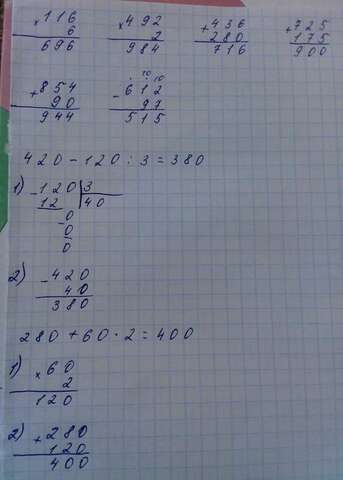 ×116 ×492 +436 +725
6 2 280 175
696 984 716 900
. 10 10
+854 -612
90 97
944 515
420 - 120 : 3 = 380
1) -120|3
12 |40
-0
0
0
2) -420
40
380
280 + 60 · 2 = 400
1) ×60
2
120
2) +280
120
400